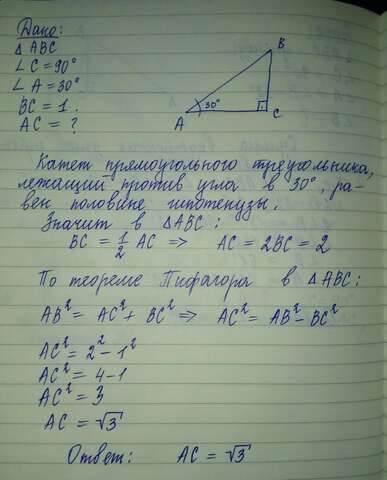 Дано:
△ ABC
∠ C = 90°
∠ A = 30°
BC = 1.
AC = ?
B
30°
A
C
Катет прямоугольного треугольника,
лежащий против угла в 30°, ра-
вен половине гипотенузы.
Значит в △ABC:
BC = 1/2 AC => AC = 2BC = 2
По теореме Пифагора в △ABC:
AB² = AC² + BC² => AC² = AB² - BC²
AC² = 2² - 1²
AC² = 4-1
AC² = 3
AC = √3
Ответ: AC = √3